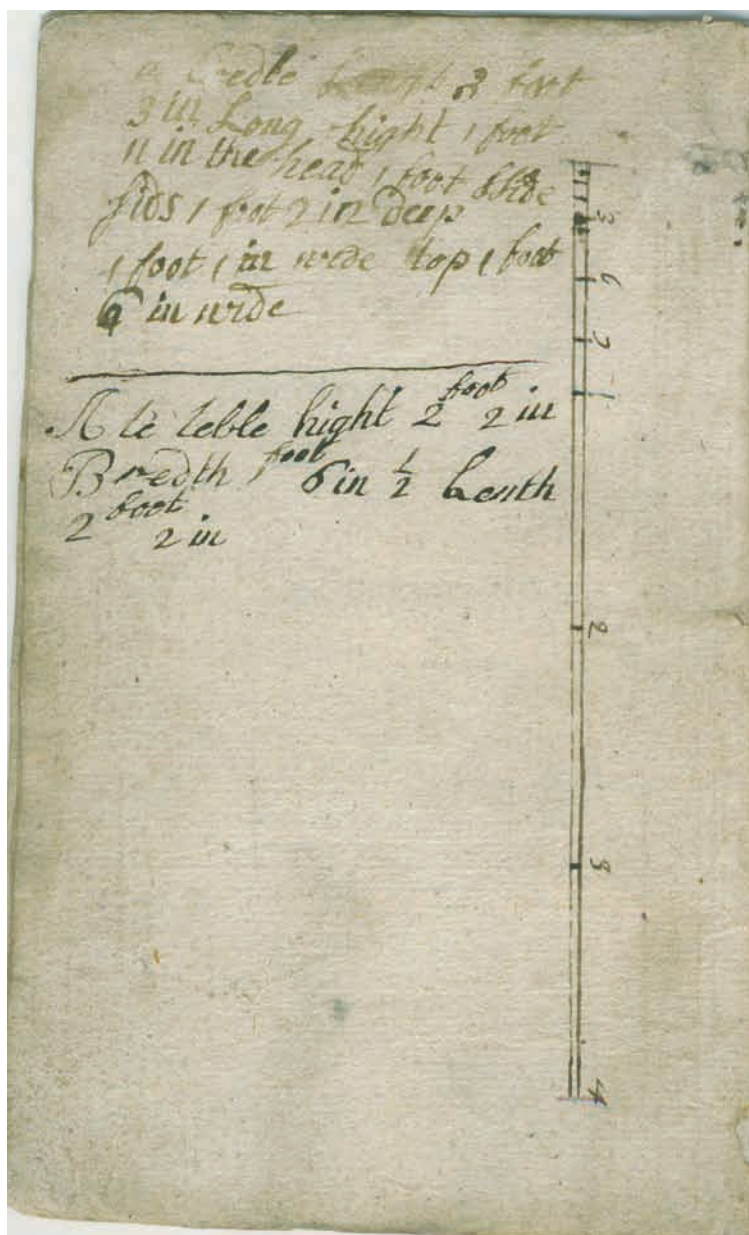 a Credle 3 foot
3 in Long hight 1 foot
11 in the head 1 foot
sids 1 foot 2 in deep
1 foot 1 in wide top 1 foot
in wide
A te teble hight 2 foot 2 in
Bredth 1 foot 6 in 1/2 Lenth
2 foot 2 in
3
6
9
1
2
3
4